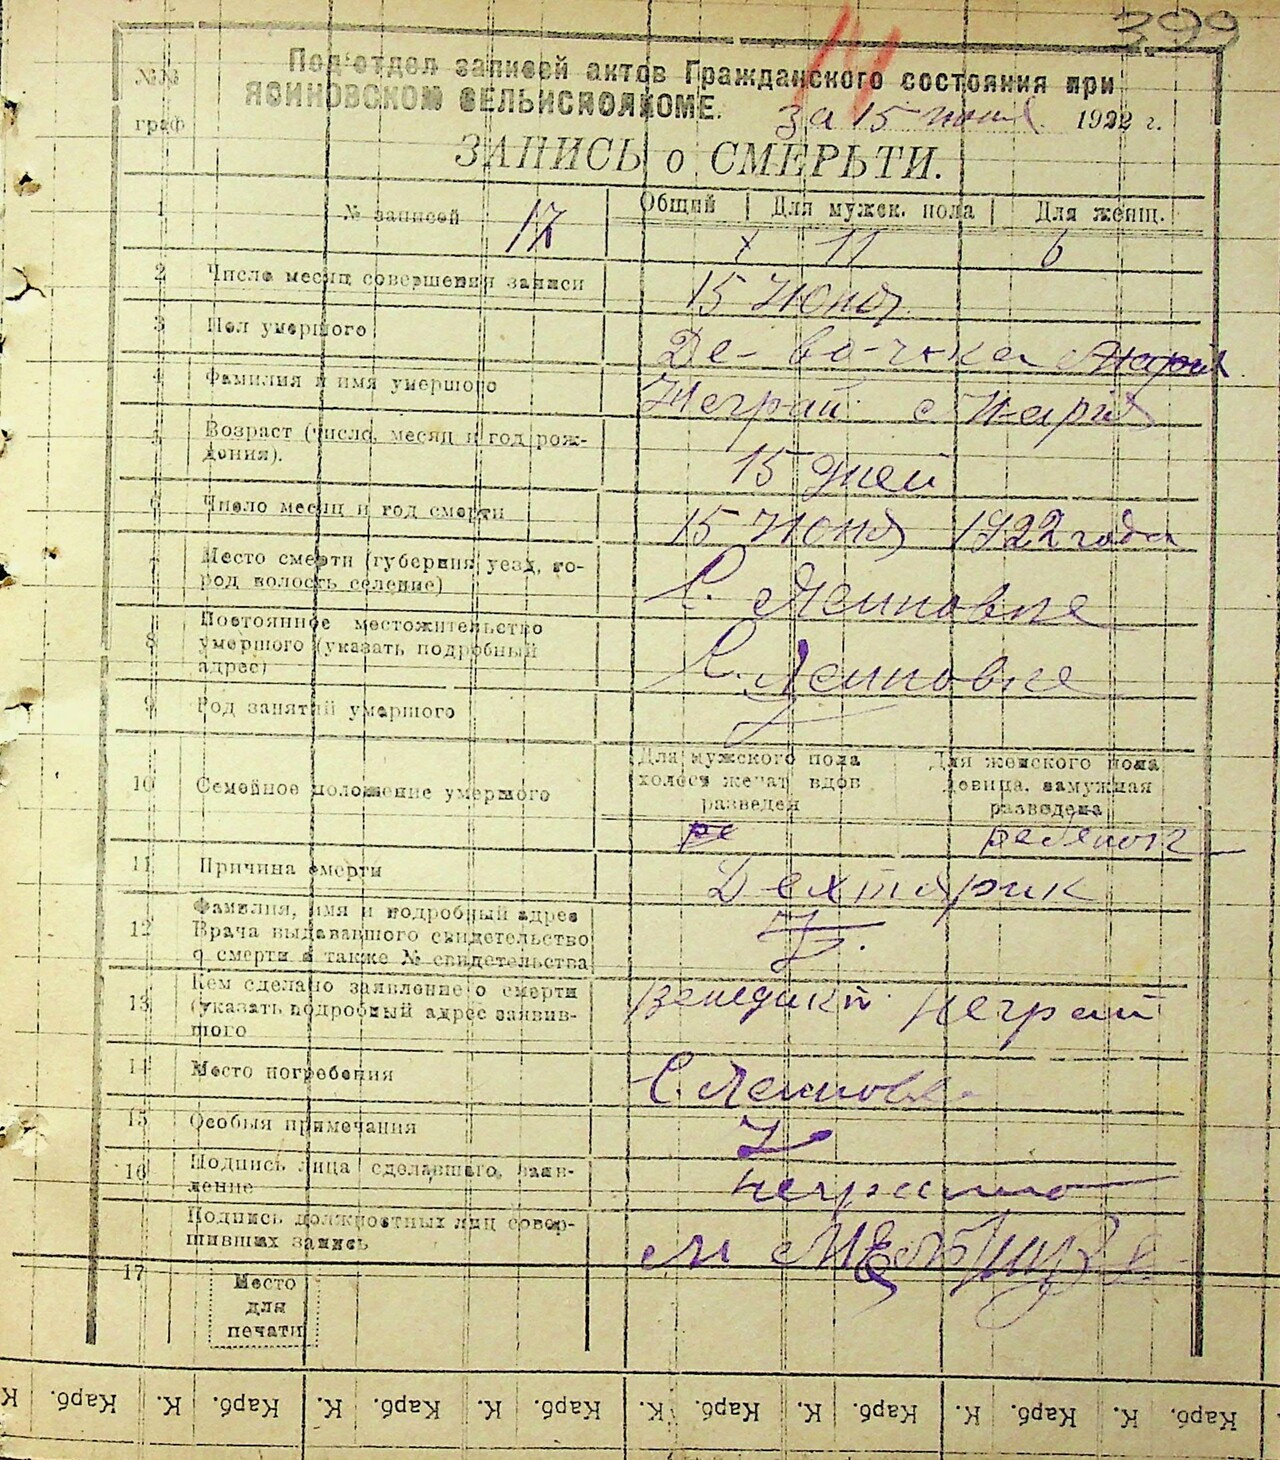 399
Под'отдел записей актов Гражданского состояния при
ЯСИНОВСКОМ СЕЛЬИСПОЛКОМЕ.
за 15 июня 1922 г.
№№ граф
ЗАПИСЬ о СМЕРЬТИ.
1 № записей 17 Общий Для мужек. пола Для женщ.
х 11 6
2 Число месяц совершения записи 15 Июня
3 Пол умершого Де-во-чка
4 Фамилия и имя умершого Неграй Мария
5 Возраст (число, месяц и год рож-
дения). 15 дней
6 Число месяц и год смерти 15 Июня 1922 года
7 Место смерти (губерния, уезд, го-
род волость селение) С. Ясиновке
8 Постоянное местожительство
умершого (указать подробный
адрес) С. Ясиновке
9 Род занятий умершого
10 Семейное положение умершого
Для мужского пола
холост женат вдов
разведен
Для женского пола
девица, замужная
разведена
ре ребенок
11 Причина смерти
12 Фамилия, имя и подробный адрес
Врача выдававшого свидетельство
о смерти а также № свидетельства
13 Кем сделано заявление о смерти
(указать подробный адрес заявив-
шого Венедикт Неграй
14 Место погребения С. Ясиновке
15 Особыя примечания
16 Подпись лица сделавшего, заяв-
ление
Подпись должностных лиц совер-
шивших запись
17
Место
для
печати
К Карб. К. Карб. К. Карб. К. Карб. К. Карб. К. Карб. К. Карб. К. Карб.